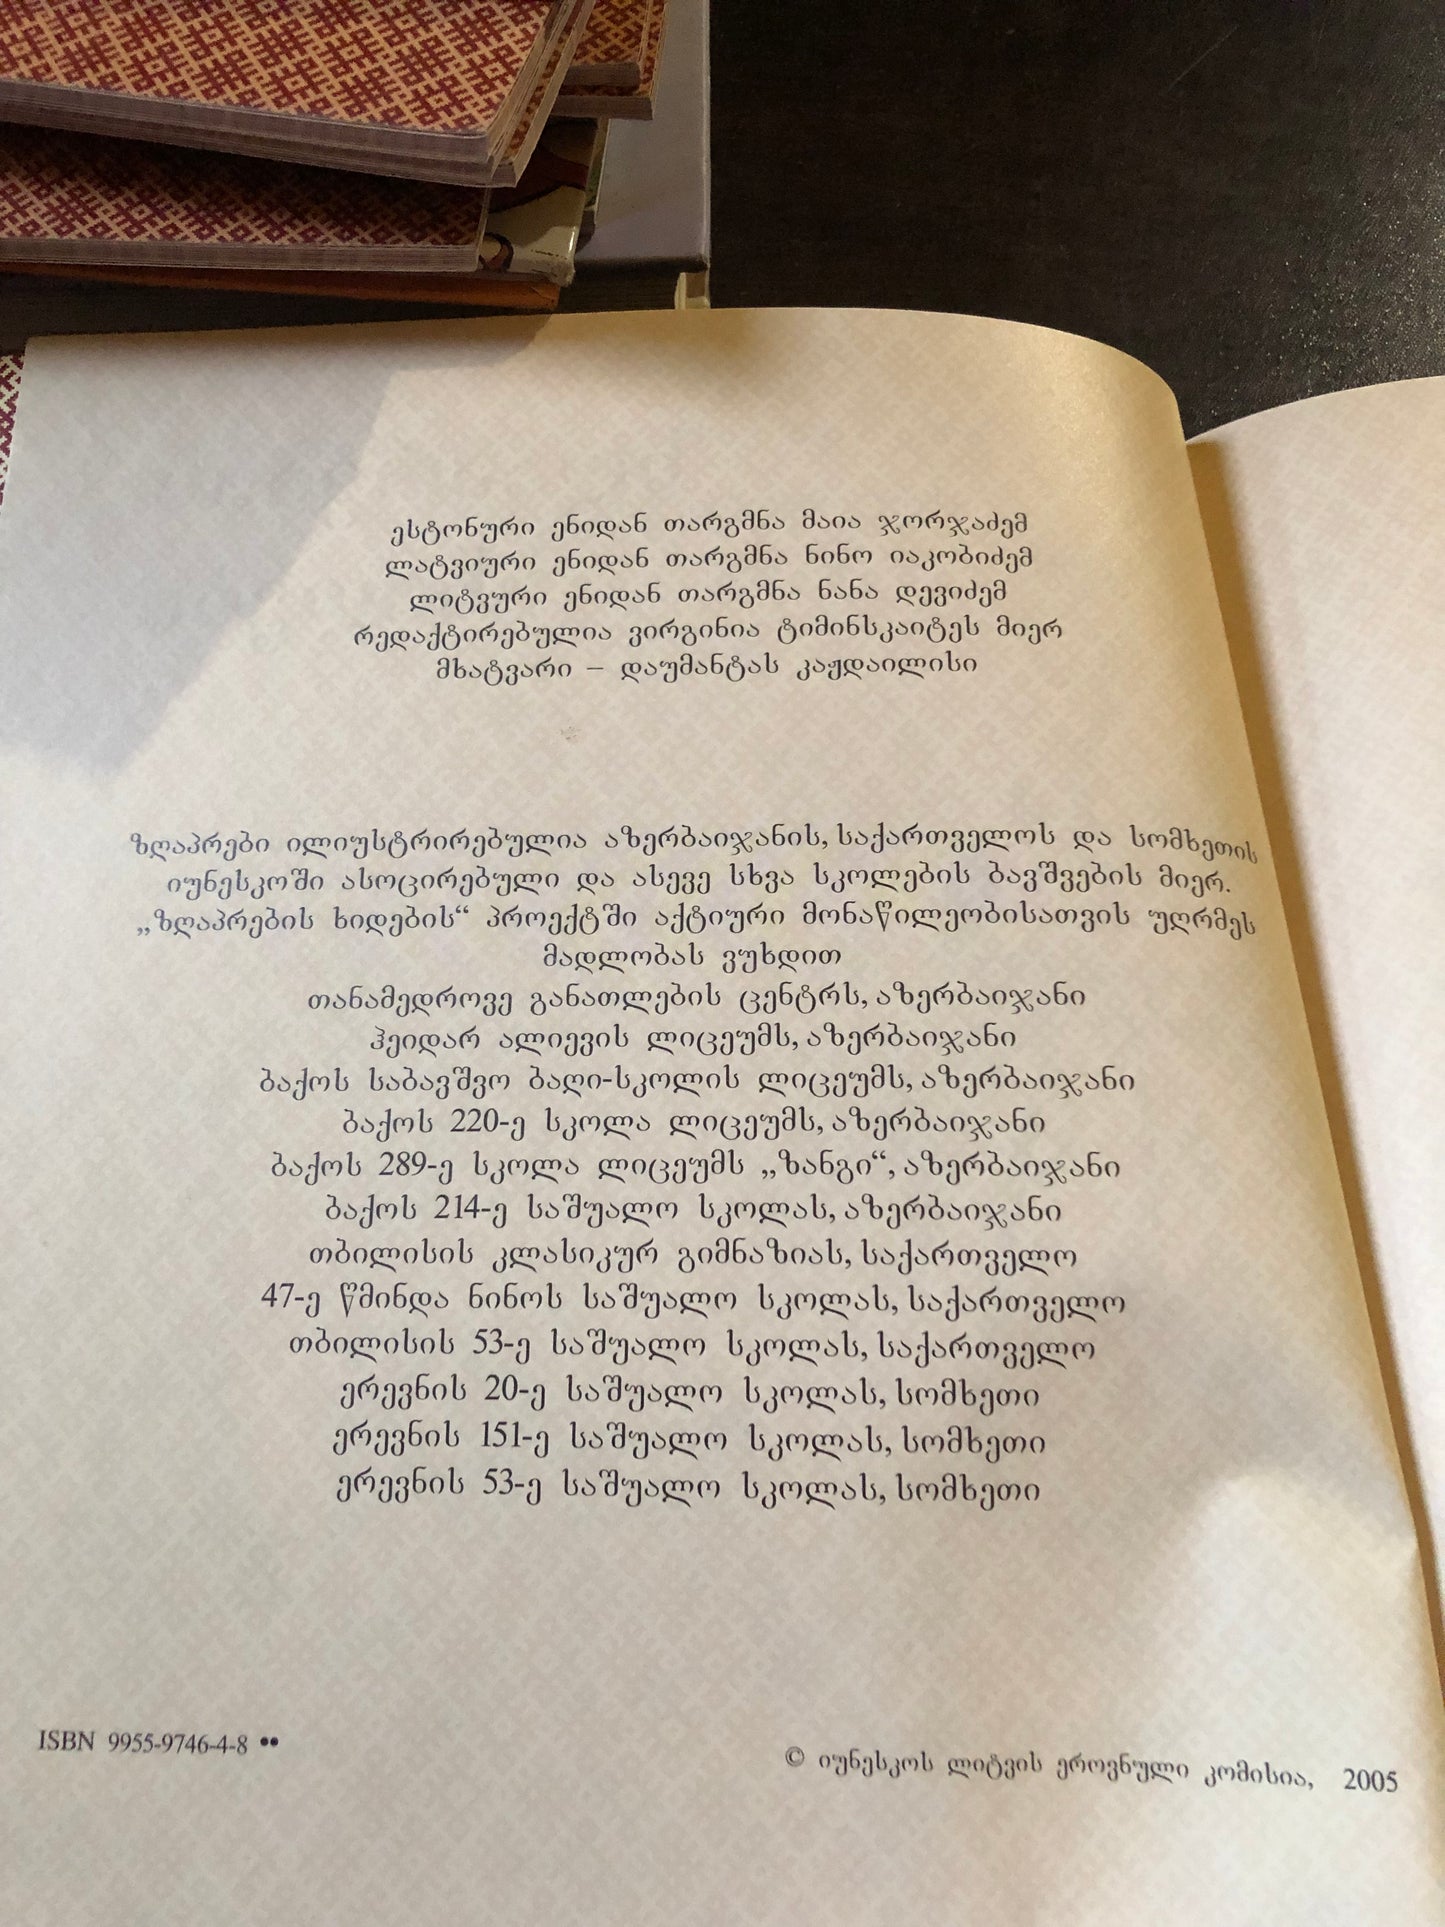 ესტონური ენიდან თარგმნა მაია ჯორჯაძემ
ლატვიური ენიდან თარგმნა ნინო იაკობიძემ
ლიტვური ენიდან თარგმნა ნანა დევიძემ
რედაქტირებულია ვირგინია ტიმინსკაიტეს მიერ
მხატვარი – დაუმანტას კაჟდაილისი
ზღაპრები ილიუსტრირებულია აზერბაიჯანის, საქართველოს და სომხეთის
იუნესკოში ასოცირებული და ასევე სხვა სკოლების ბავშვების მიერ.
„ზღაპრების ხიდების“ პროექტში აქტიური მონაწილეობისათვის უღრმეს
მადლობას ვუხდით
თანამედროვე განათლების ცენტრს, აზერბაიჯანი
ჰეიდარ ალიევის ლიცეუმს, აზერბაიჯანი
ბაქოს საბავშვო ბაღი-სკოლის ლიცეუმს, აზერბაიჯანი
ბაქოს 220-ე სკოლა ლიცეუმს, აზერბაიჯანი
ბაქოს 289-ე სკოლა ლიცეუმს „ზანგი“, აზერბაიჯანი
ბაქოს 214-ე საშუალო სკოლას, აზერბაიჯანი
თბილისის კლასიკურ გიმნაზიას, საქართველო
47-ე წმინდა ნინოს საშუალო სკოლას, საქართველო
თბილისის 53-ე საშუალო სკოლას, საქართველო
ერევნის 20-ე საშუალო სკოლას, სომხეთი
ერევნის 151-ე საშუალო სკოლას, სომხეთი
ერევნის 53-ე საშუალო სკოლას, სომხეთი
ISBN 9955-9746-4-8 ••
© იუნესკოს ლიტვის ეროვნული კომისია, 2005